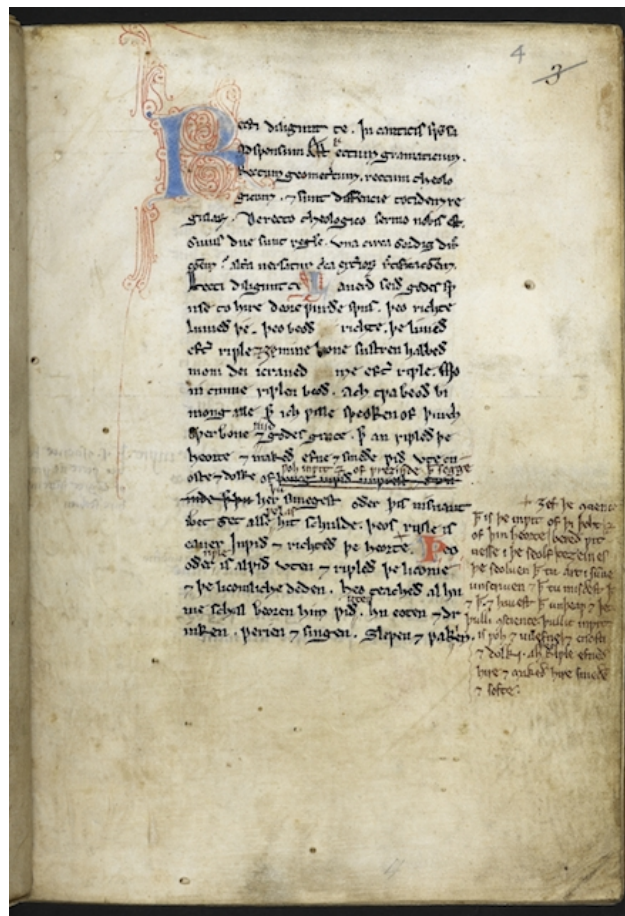 4
3
Recti diligunt te. In canticis sp̄sa
ad sponsum. Est rectum gramaticum.
Rectum geometricum. rectum theolo
gicum. ⁊ sunt differencie totidem re
gulaꝝ. De recto theologico sermo nobis est.
Cuius due sunt regle. vna circa cordis dir
altera versatur circa
Recti diligunt te Lauerd seið godes sp
use to hire deore ƿurðe spus. þeo richte
luuieð þe. þeo beoð richte. þe liuieð
eft̄ riƿle ⁊ ȝe mine leoue sustren habbeð
moni dei icraued me eft̄ riƿle. Mo
ni cunne riƿlen beoð. Ach tƿa beoð bi
mong alle ꝥ ich ƿille speoken of þurch
oƿer bone mid godes grace. ꝥ an riƿleð þe
heorte ⁊ makeð efne ⁊ smeðe ƿið vte cn
oste ⁊ dolke of ƿoh inƿit ⁊ of ꝥ segge
her þu sunegest oðer þis nis naut
ibet ȝet alse ƿel as hit schulde. þeos riƿle is
eauer inƿið ⁊ richteð þe heorte. þeo
oðer is al ƿið vten ⁊ riƿleð þe licome
⁊ þe licomliche deden. þeo teacheð al hu
me schal beoren him ƿið vten. hu eoten ⁊ dr
inken. ƿerien ⁊ singen. slepen ⁊ ƿakien.
ꝥ is þe inƿit of þi þoht ⁊
of þin heorte bereð ƿit
nesse i þe seolf
þe seoluen ꝥ tu art i sunne
unscriuen ⁊ ꝥ tu misdest ꝥ
⁊ ꝥ ⁊ hauest ꝥ unþeaƿ ⁊ þet
is ƿoh ⁊ unefne ⁊ cnosti
⁊ dolki. ah riƿle efneð
hire ⁊ makeð hire smeðe
⁊ softe.